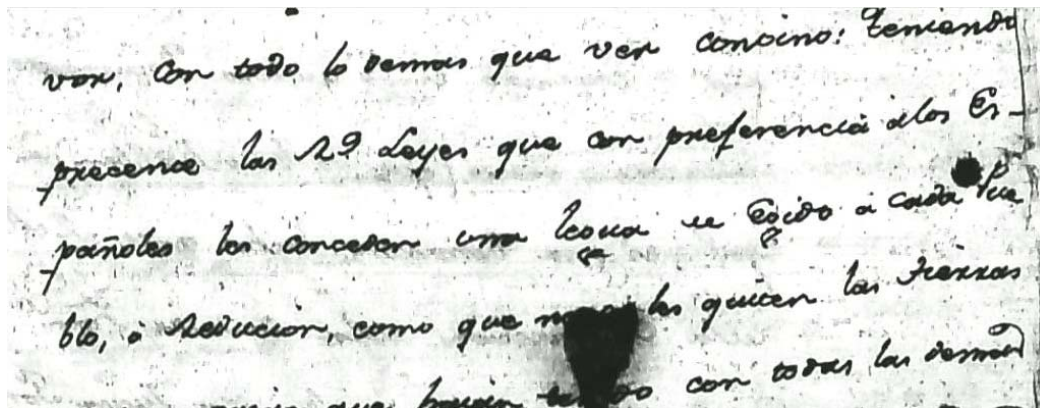 vor, con todo lo demas que ver convino: teniendo
precente las Rs Leyes que con preferencia alos Es-
pañoles les conceden una legua de Egido a cada Pue
blo, ò Reducion, como que no les quiten las tierras
que haian con todas las demas